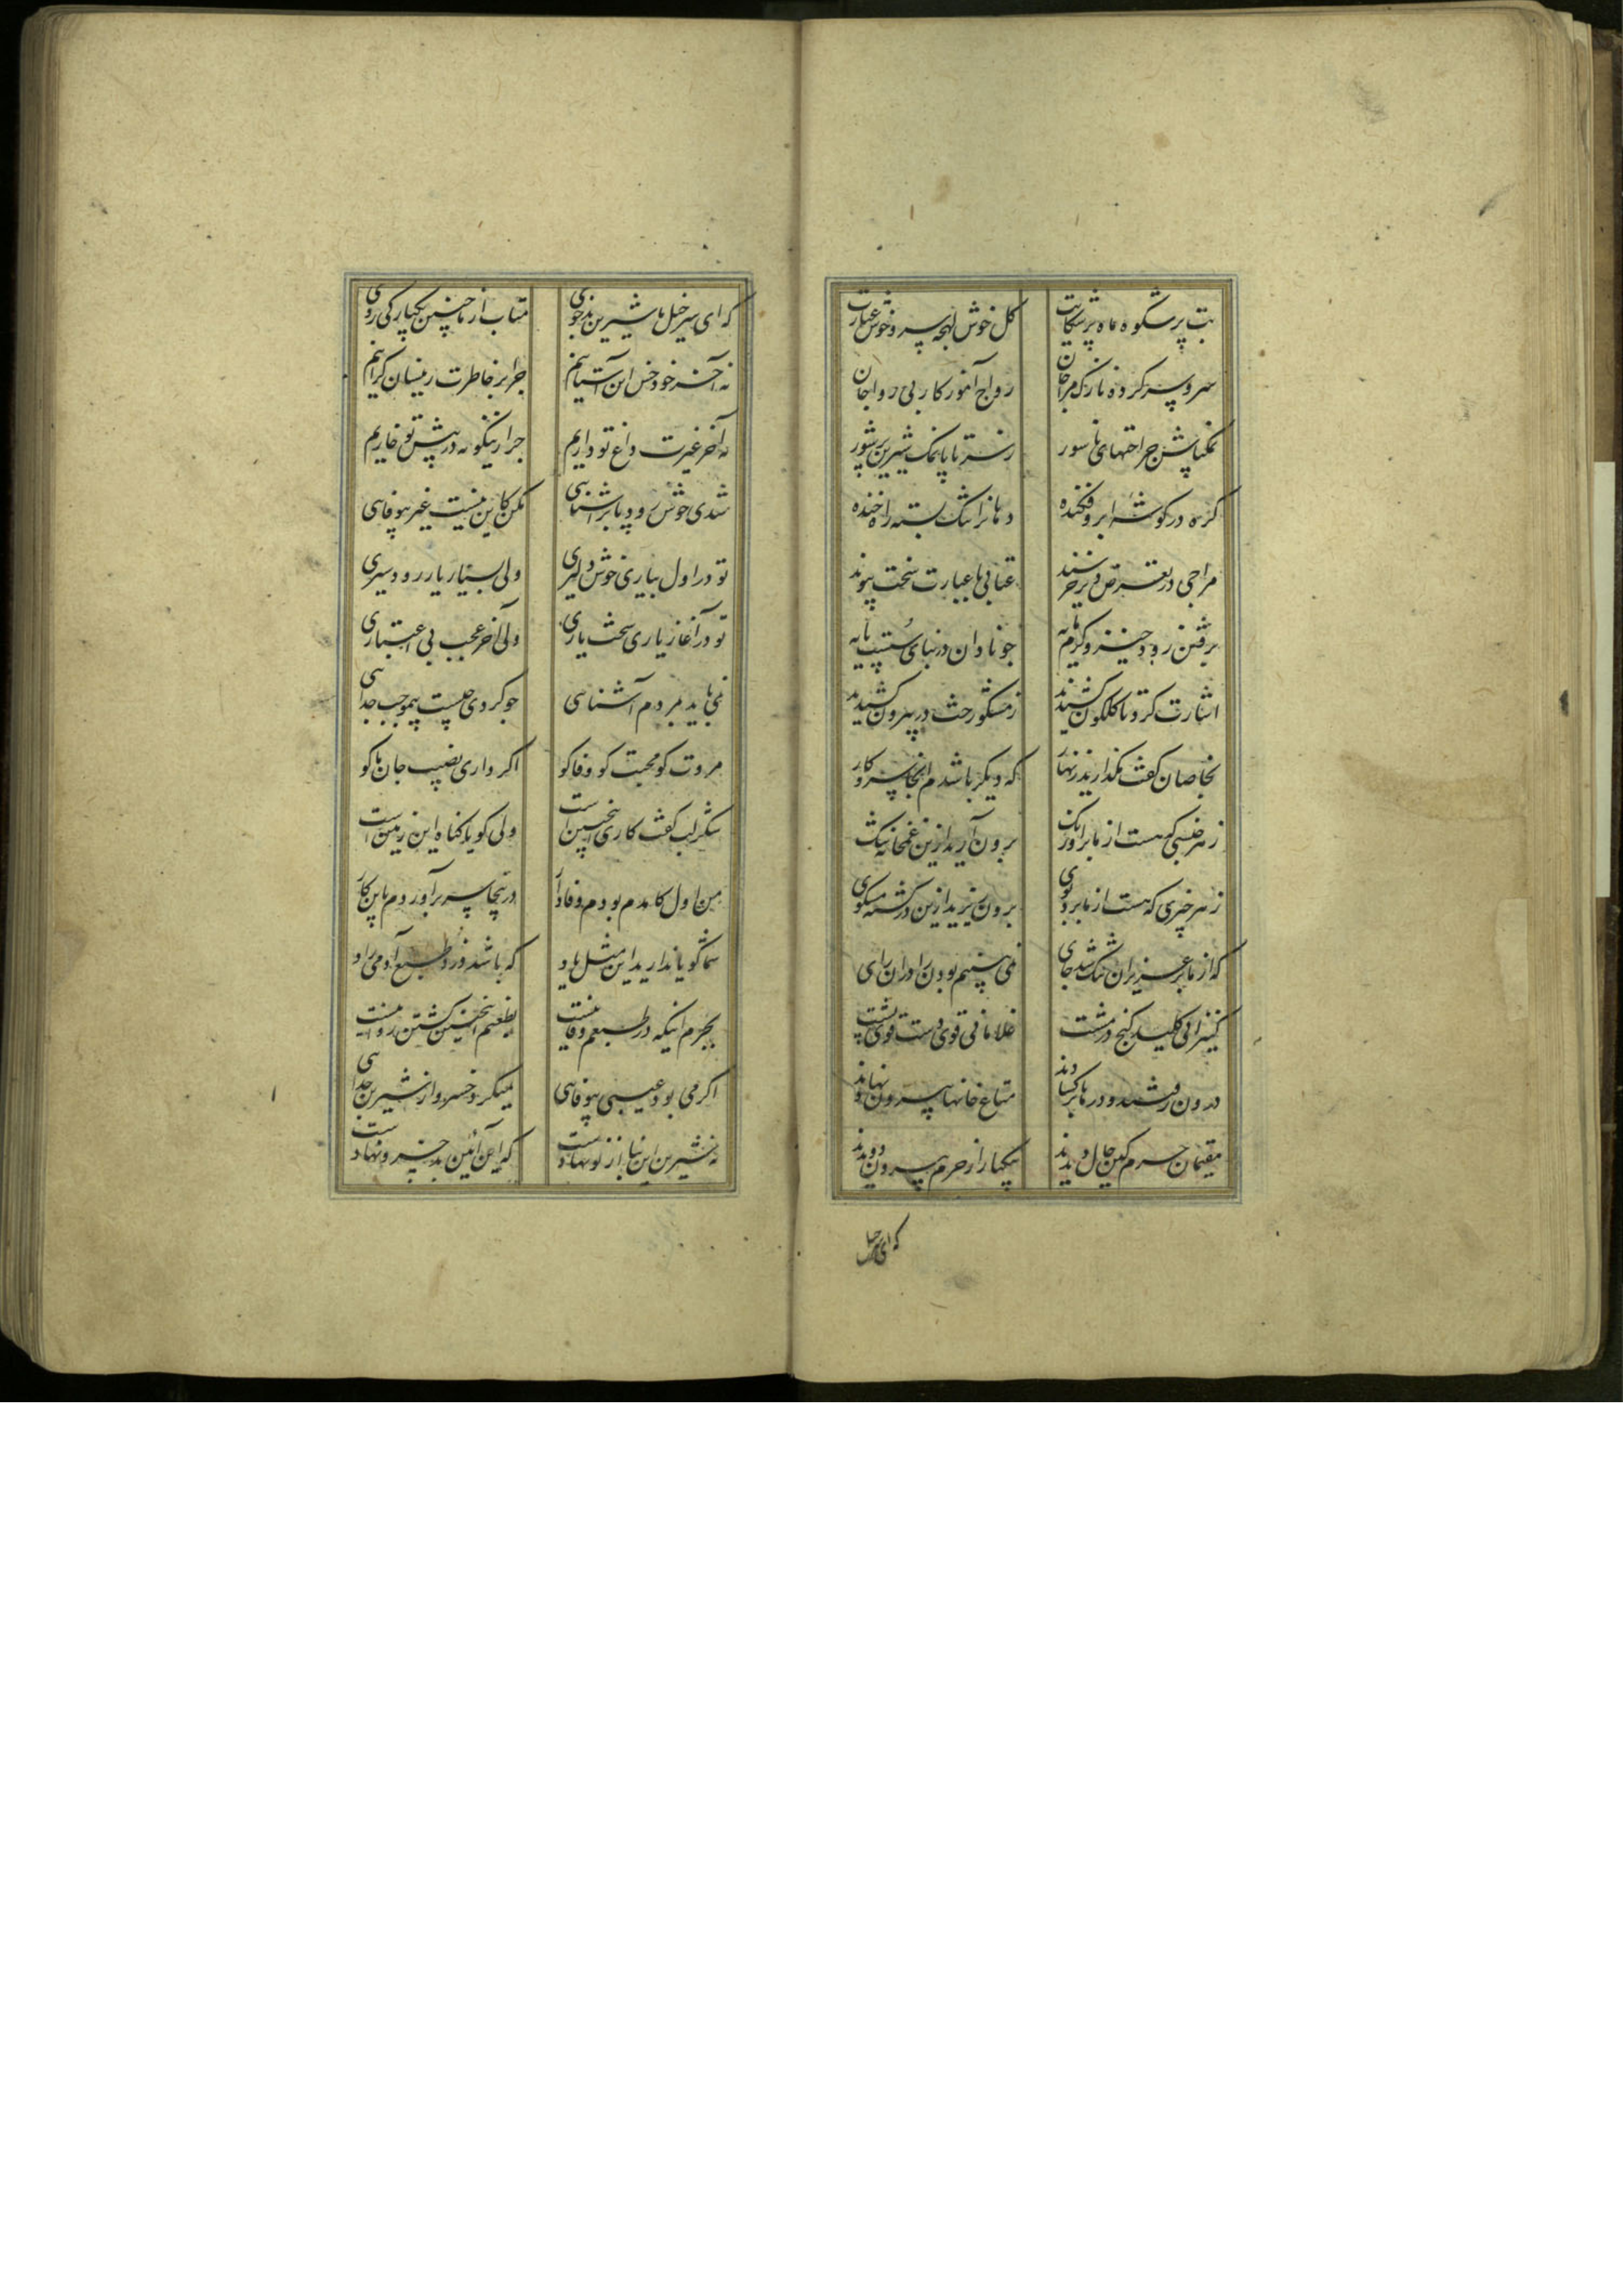 بت پر شکوه ماه پر شکایت گل خوش لهجه سرو خوش عبارت
سر و سرکرده نازک مزاجان رواج آموز کار بی رواجان
نمکپاش جراحتهای ناسور ز سر تا پا نمک شیرین پرشور
گره در گوشه ابرو فکنده دهانرا تنک بسته راه خنده
مزاجی در تعرض دیر خرسند عتابی با عبارت سخت پیوند
برفتن زود خیز و گرم مایه چو نادان در بنای سست پایه
اشارت کرد تا گلگون کشیدند ز مشکو رخت در بیرون کشیدند
بخاصان گفت مگذارید زنهار که دیگر باشدم اینجا سر و کار
ز هر جنسی که هست از ما بر اورنگ برون آرید ازین غمخانه تنک
ز هر چیزی که هست از ما برو بوی برون ریزید ازین در گشته مشکوی
که از ما بر عزیزان تنک شد جای نمی بینیم بودن را در آن رای
کنیزانی کلید گنج در مشت غلامانی قوی دست قوی پشت
درون رفتند و درها برگشادند متاع خانها بیرون نهادند
مقیمان حرم کین حال دیدند بیکبار از حرم بیرون دویدند
که ای سرخیل
که ای سرخیل ما شیرین بدخوی متاب از ما چنین یکبارگی روی
نه آخر خود خس این آستانیم چرا بر خاطرت زینسان گرانیم
نه آخر غیرت داغ تو داریم چرا زینگونه در پیش تو خاریم
شدی خوش زود با بر آشنائی مکن کاین نیست غیر بیوفائی
تو در اول بیاری خوش دلیری ولی بسیار یار زود سیری
تو در آغاز یاری سخت یاری ولی آخر عجب بی اعتباری
نمی باید بمردم آشنائی چو کردی چیست بیموجب جدائی
مروت کو محبت کو وفا کو اگر داری نصیب جان ما کو
شکر لب گفت کاری اینچنین است ولی گویا گناه این زمین است
من اول کامدم بودم وفادار درینجا سر برآوردم باین کار
شما گویا ندارید این مثل یاد که باشد دزد طبع آدمیزاد
بجرم اینکه در طبعم وفا نیست بطعنم اینچنین کشتن روا نیست
اگر می بود عیبی بیوفائی نمیکرد خسرو از شیرین جدائی
نه شیرین این نیاز از نو نهادست که این آئین بد خسرو نهادست